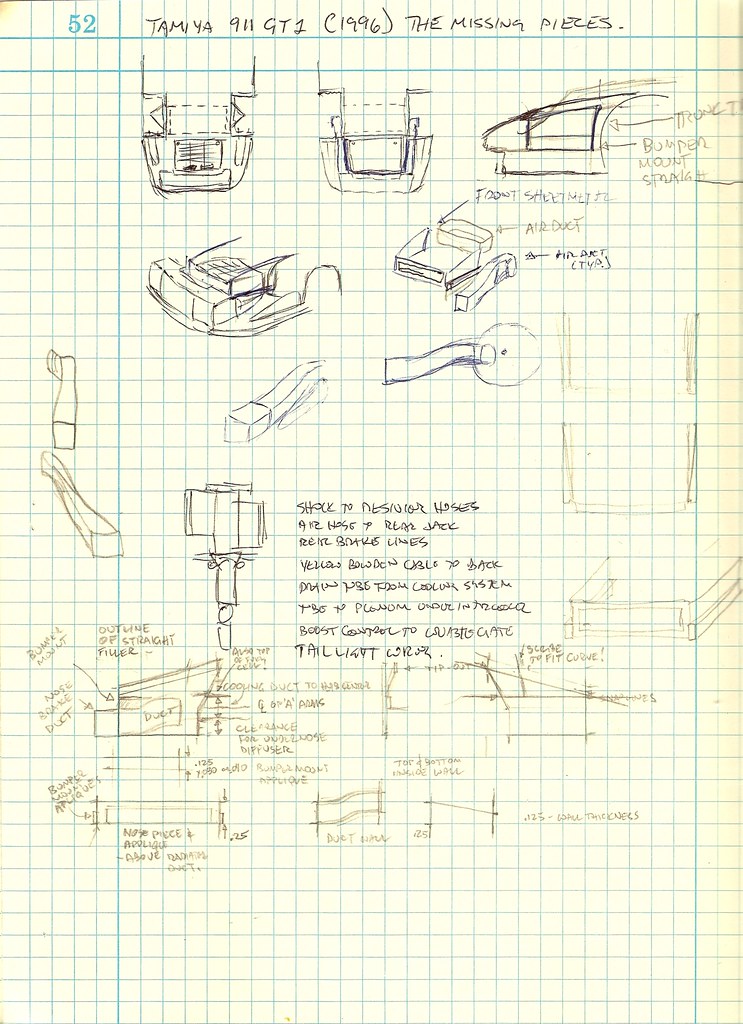 52
TAMIYA 911 GT1 (1996) THE MISSING PIECES.
BUMPER
MOUNT
STRAIGH
FRONT SHEETMETAL
AIR DUCT
AIR DUCT
(TYP.)
SHOCK TO RESIVIOR HOSES
AIR HOSE TO REAR JACK
REAR BRAKE LINES
YELLOW BOWDEN CABLE TO BACK
DRAIN TUBE FROM COOLING SYSTEM
TUBE TO PLENUM UNDER INTERCOOLER
BOOST CONTROL TO WASTEGATE
TAILLIGHT WIRING.
BUMPER
MOUNT
OUTLINE
OF STRAIGHT
FILLER -
ALSO TOP
OF
NOSE
BRAKE
DUCT
DUCT
COOLING DUCT TO
OF 'A' ARMS
CLEARANCE
FOR UNDERNOSE
DIFFUSER
SCRIBE
TO FIT CURVE!
.125
BUMPER MOUNT
APPLIQUE
BUMPER
MOUNT
APPLIQUES
NOSE PIECE &
APPLIQUE
- ABOVE RADIATOR
DUCT.
.25
DUCT WALL
TOP & BOTTOM
INSIDE WALL
.125
.125 - WALL THICKNESS